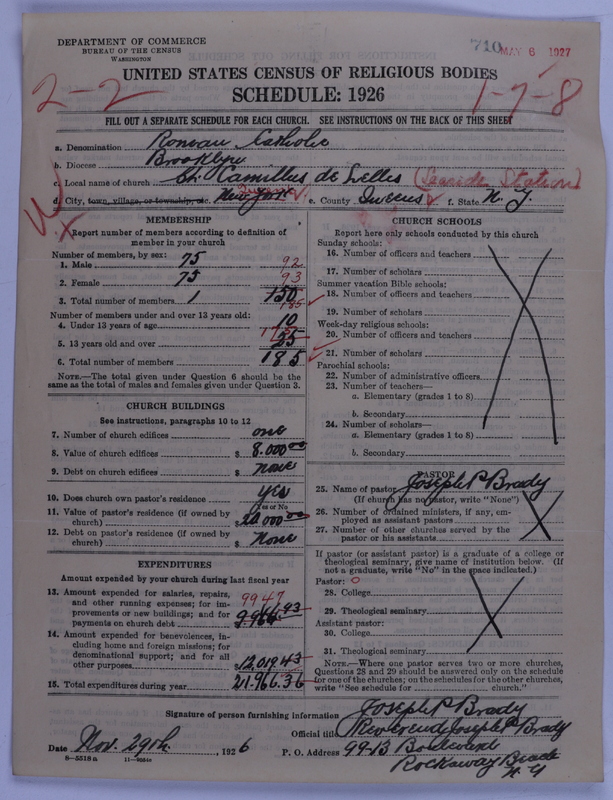 DEPARTMENT OF COMMERCE
BUREAU OF THE CENSUS
WASHINGTON
710
MAY 6 1927
UNITED STATES CENSUS OF RELIGIOUS BODIES
SCHEDULE: 1926
2-2
1-7-8
FILL OUT A SEPARATE SCHEDULE FOR EACH CHURCH. SEE INSTRUCTIONS ON THE BACK OF THIS SHEET
a. Denomination Roman Catholic
b. Diocese Brooklyn
c. Local name of church St. Camillus de Lellis (Seaside Station)
d. City, town, village, or township, etc. New York e. County Queens f. State N. Y.
MEMBERSHIP
Report number of members according to definition of member in your church
Number of members, by sex:
1. Male 75 92
2. Female 75 93
3. Total number of members 1 150 185
Number of members under and over 13 years old:
4. Under 13 years of age 10
5. 13 years old and over 175 25
6. Total number of members 185
NOTE.—The total given under Question 6 should be the same as the total of males and females given under Question 3.
CHURCH BUILDINGS
See instructions, paragraphs 10 to 12
7. Number of church edifices one
8. Value of church edifices $ 8.000 00
9. Debt on church edifices $ none
10. Does church own pastor's residence yes
Yes or No
11. Value of pastor's residence (if owned by church) $ 20 000 00
12. Debt on pastor's residence (if owned by church) $ None
EXPENDITURES
Amount expended by your church during last fiscal year
13. Amount expended for salaries, repairs, and other running expenses; for improvements or new buildings; and for payments on church debt 9947
14. Amount expended for benevolences, including home and foreign missions; for denominational support; and for all other purposes $ 12,019.43
15. Total expenditures during year 21.966.36
CHURCH SCHOOLS
Report here only schools conducted by this church
Sunday schools:
16. Number of officers and teachers
17. Number of scholars
Summer vacation Bible schools:
18. Number of officers and teachers
19. Number of scholars
Week-day religious schools:
20. Number of officers and teachers
21. Number of scholars
Parochial schools:
22. Number of administrative officers
23. Number of teachers—
a. Elementary (grades 1 to 8)
b. Secondary
24. Number of scholars—
a. Elementary (grades 1 to 8)
b. Secondary
PASTOR
25. Name of pastor Joseph P Brady
(If church has no pastor, write "None")
26. Number of ordained ministers, if any, employed as assistant pastors
27. Number of other churches served by the pastor or his assistants
If pastor (or assistant pastor) is a graduate of a college or theological seminary, give name of institution below. (If not a graduate, write "No" in the space indicated.)
Pastor: O
28. College
29. Theological seminary
Assistant pastor:
30. College
31. Theological seminary
NOTE.—Where one pastor serves two or more churches, Questions 28 and 29 should be answered only on the schedule for one of the churches; on the schedules for the other churches, write "See schedule for church."
Signature of person furnishing information Joseph P Brady
Official title Reverend Joseph P Brady
Date Nov. 29th, 1926 P. O. Address 99-13 Boulevard
Rockaway Beach
N. Y.
8-5518a 11-9984c